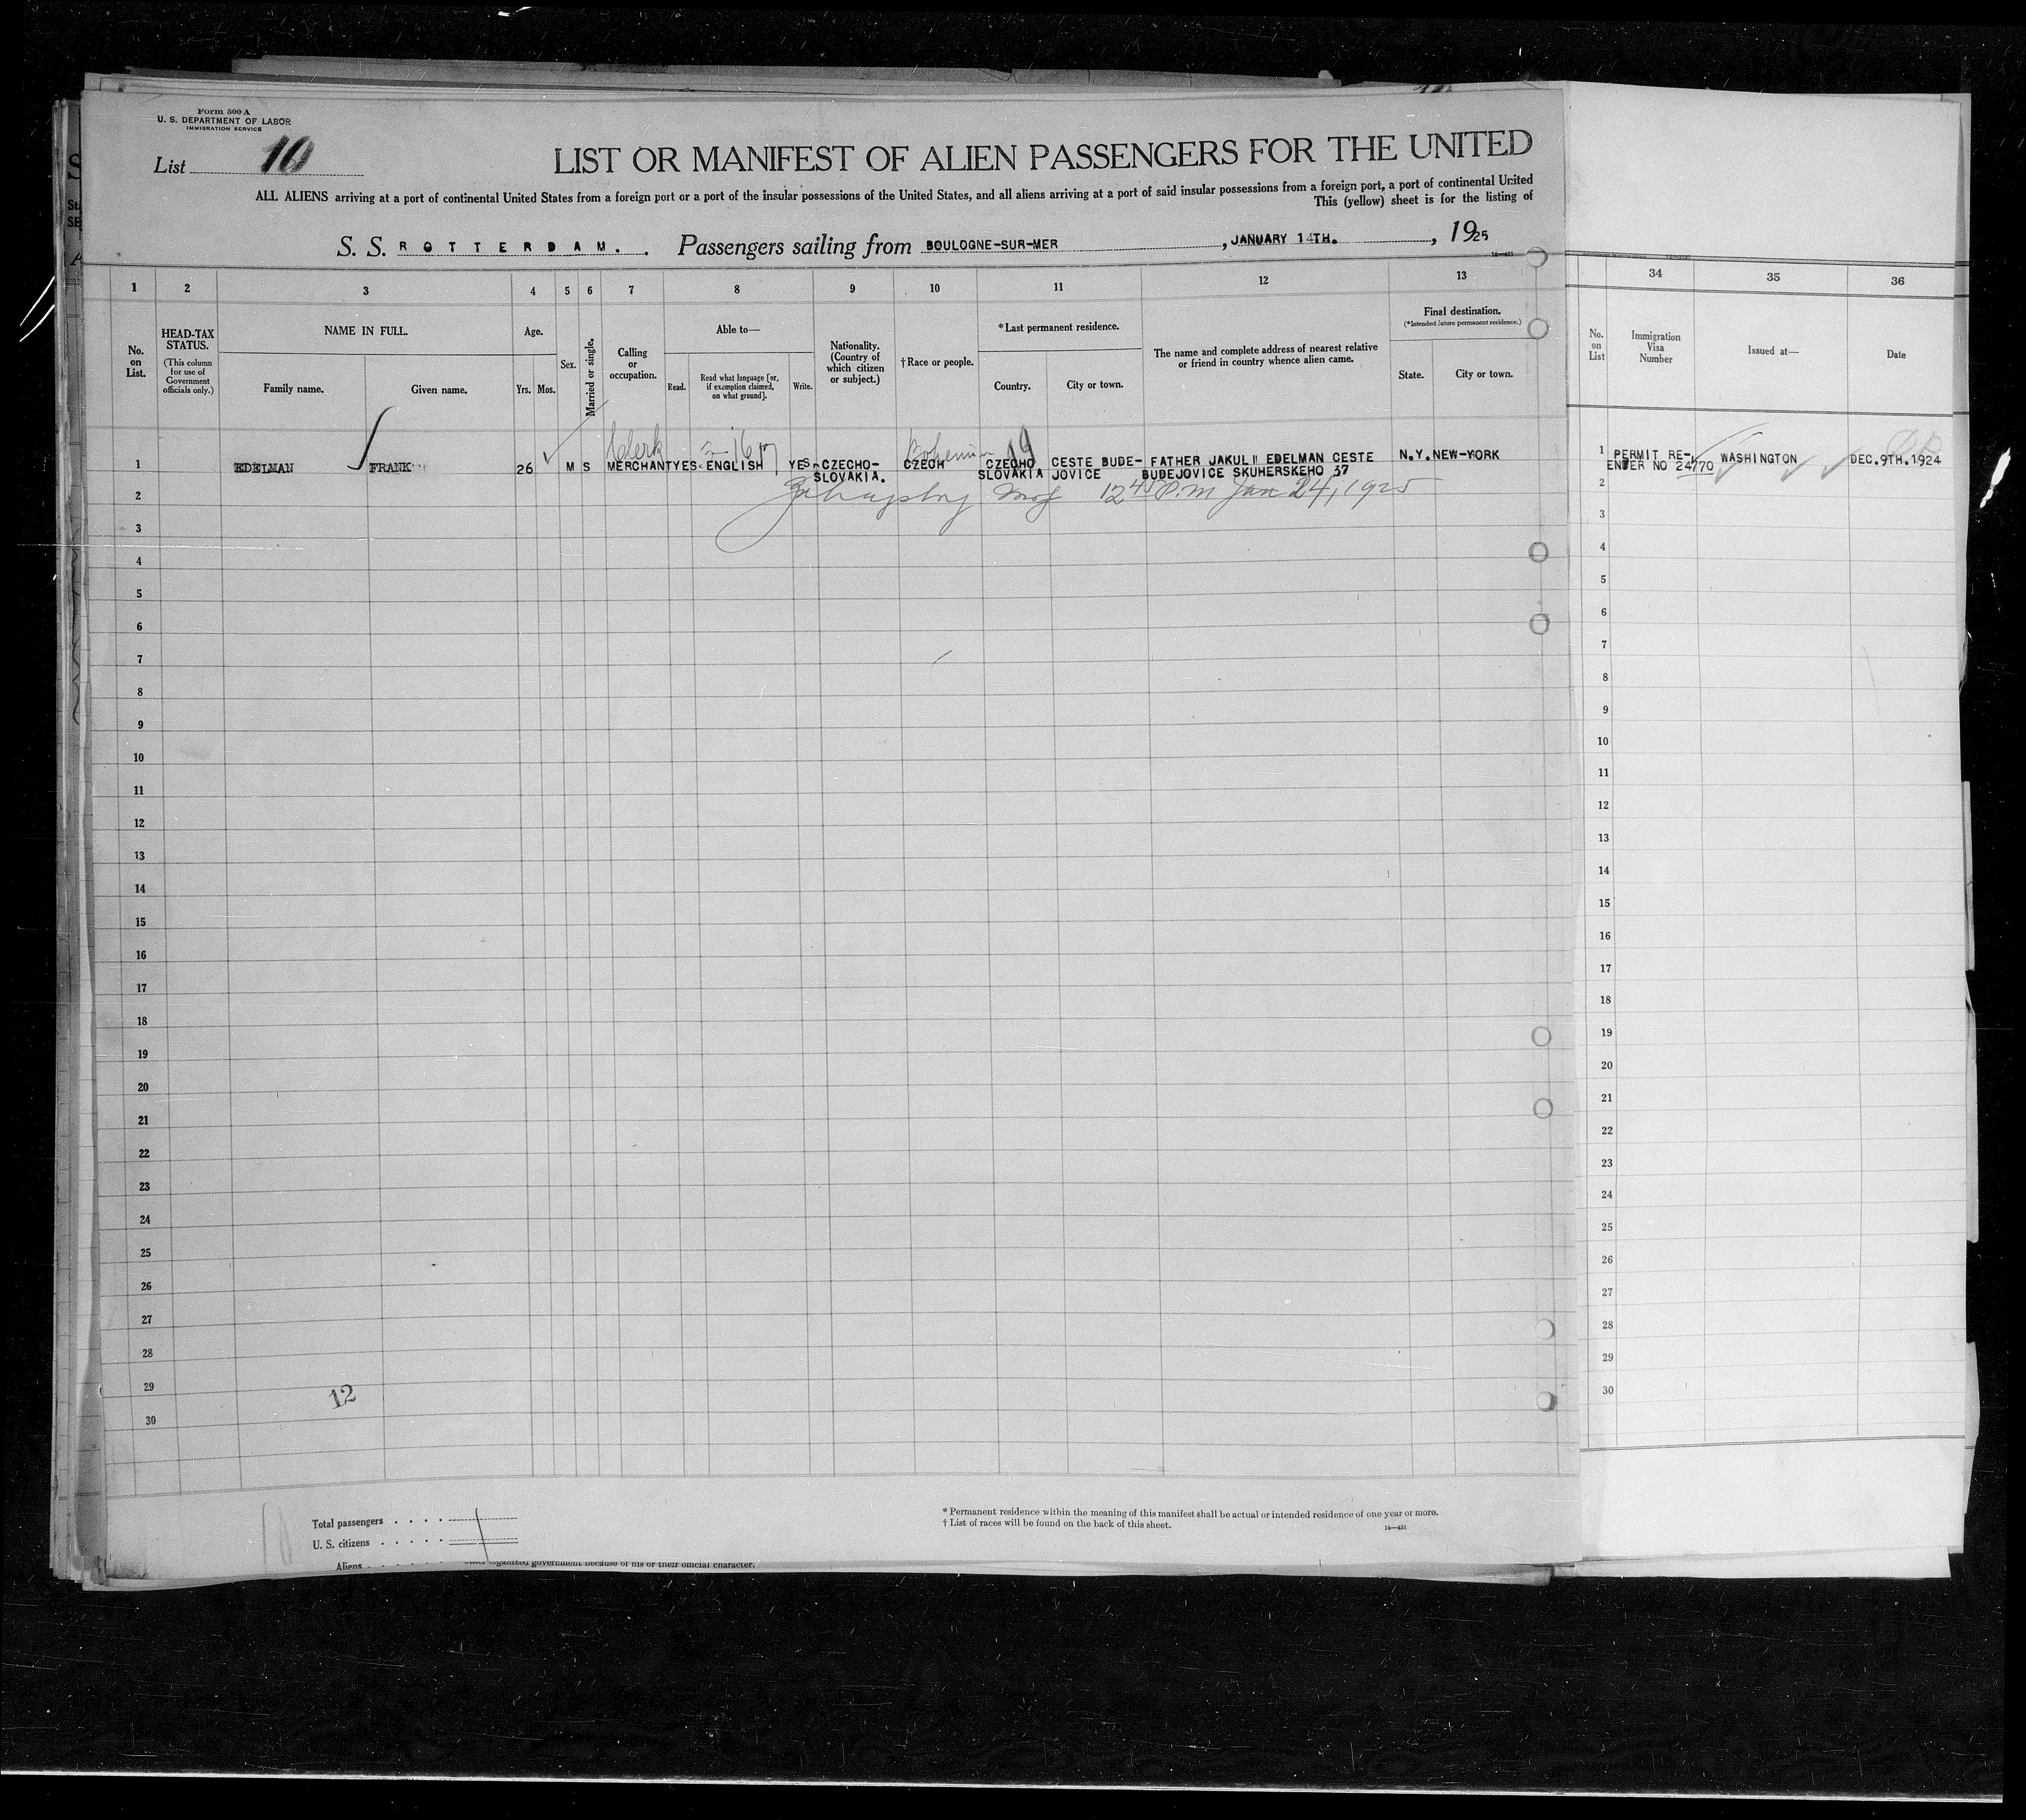 Form 500 A
U. S. DEPARTMENT OF LABOR
IMMIGRATION SERVICE
List 10
LIST OR MANIFEST OF ALIEN PASSENGERS FOR THE UNITED
ALL ALIENS arriving at a port of continental United States from a foreign port or a port of the insular possessions of the United States, and all aliens arriving at a port of said insular possessions from a foreign port, a port of continental United
This (yellow) sheet is for the listing of
S. S. ROTTERDAM. Passengers sailing from BOULOGNE-SUR-MER, JANUARY 14TH., 1925
1 2 3 4 5 6 7 8 9 10 11 12 13 34 35 36
No. on List.
HEAD-TAX STATUS.
(This column for use of Government officials only.)
NAME IN FULL.
Family name.
Given name.
Age.
Yrs. Mos.
Sex.
Married or single.
Calling or occupation.
Able to—
Read.
Read what language [or, if exemption claimed, on what ground].
Write.
Nationality. (Country of which citizen or subject.)
†Race or people.
*Last permanent residence.
Country.
City or town.
The name and complete address of nearest relative or friend in country whence alien came.
Final destination.
(*Intended future permanent residence.)
State.
City or town.
No. on List
Immigration Visa Number
Issued at—
Date
Clerk
Bohemian
19
1 EDELMAN FRANK 26 M S MERCHANT YES ENGLISH YES CZECHO- CZECH CZECHO CESTE BUDE- FATHER JAKUL EDELMAN CESTE N.Y. NEW-YORK 1 PERMIT RE- WASHINGTON DEC.9TH.1924
SLOVAKIA. SLOVAKIA JOVICE BUDEJOVICE SKUHERSKEHO 37 ENTER NO 24770
12 45 P.m Jan 24, 1925
2 2
3 3
4 4
5 5
6 6
7 7
8 8
9 9
10 10
11 11
12 12
13 13
14 14
15 15
16 16
17 17
18 18
19 19
20 20
21 21
22 22
23 23
24 24
25 25
26 26
27 27
28 28
29 29
12
30 30
Total passengers
U. S. citizens
Aliens
other organized government because of his or their official character.
* Permanent residence within the meaning of this manifest shall be actual or intended residence of one year or more.
† List of races will be found on the back of this sheet.
14—431